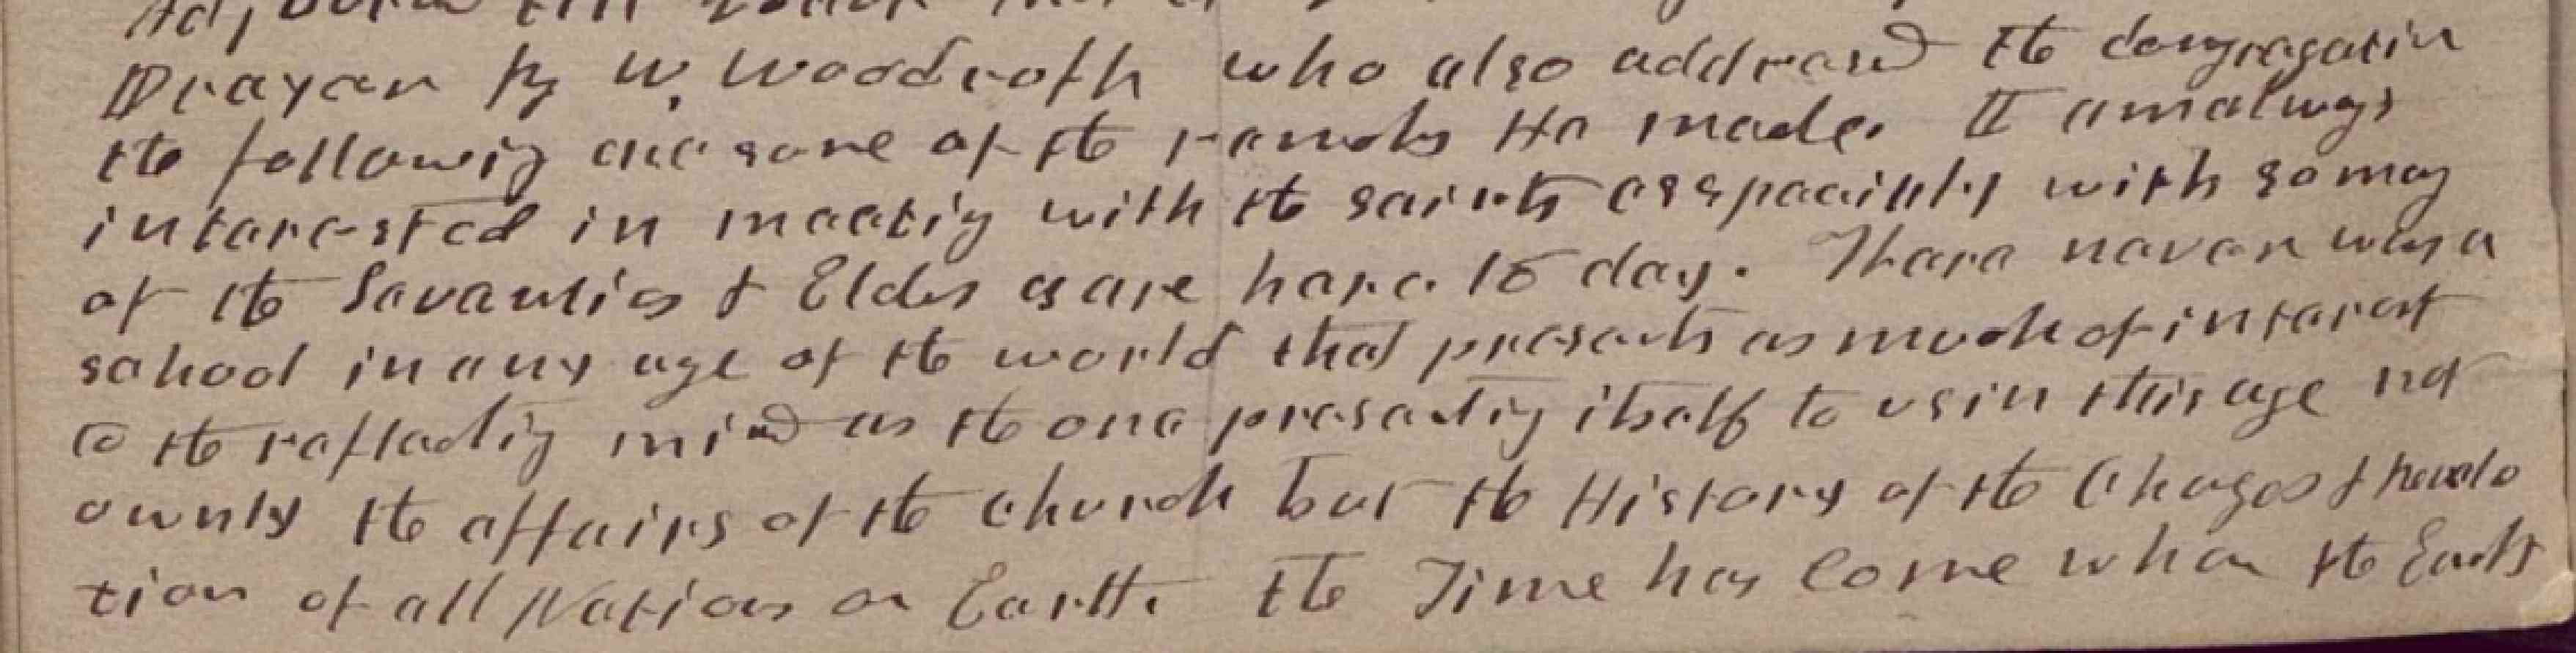 Prayer by W. Woodroofh who also addresed the congregatin
the followig are some of the remrks He made. II am always
interested in meetig with the saints esspecially with so many
of the Seventies & Elders as are here to day. There never was a
school in any age of the world that presents as much of interest
to the reflectig mind as the one presentig itself to us in this age not
ownly the affairs of the church but the History of the Chages & revolo
tion of all Nations on Earth. the Time has come when the Earth